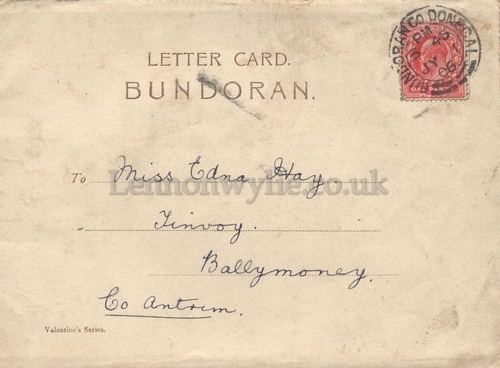 LETTER CARD.
BUNDORAN.
BUNDORAN CO. DONEGAL
PM
JY
06
ONE PENNY
To Miss Edna Hay
Lennonwylie.co.uk
Finvoy.
Ballymoney.
Co Antrim.
Valentine's Series.